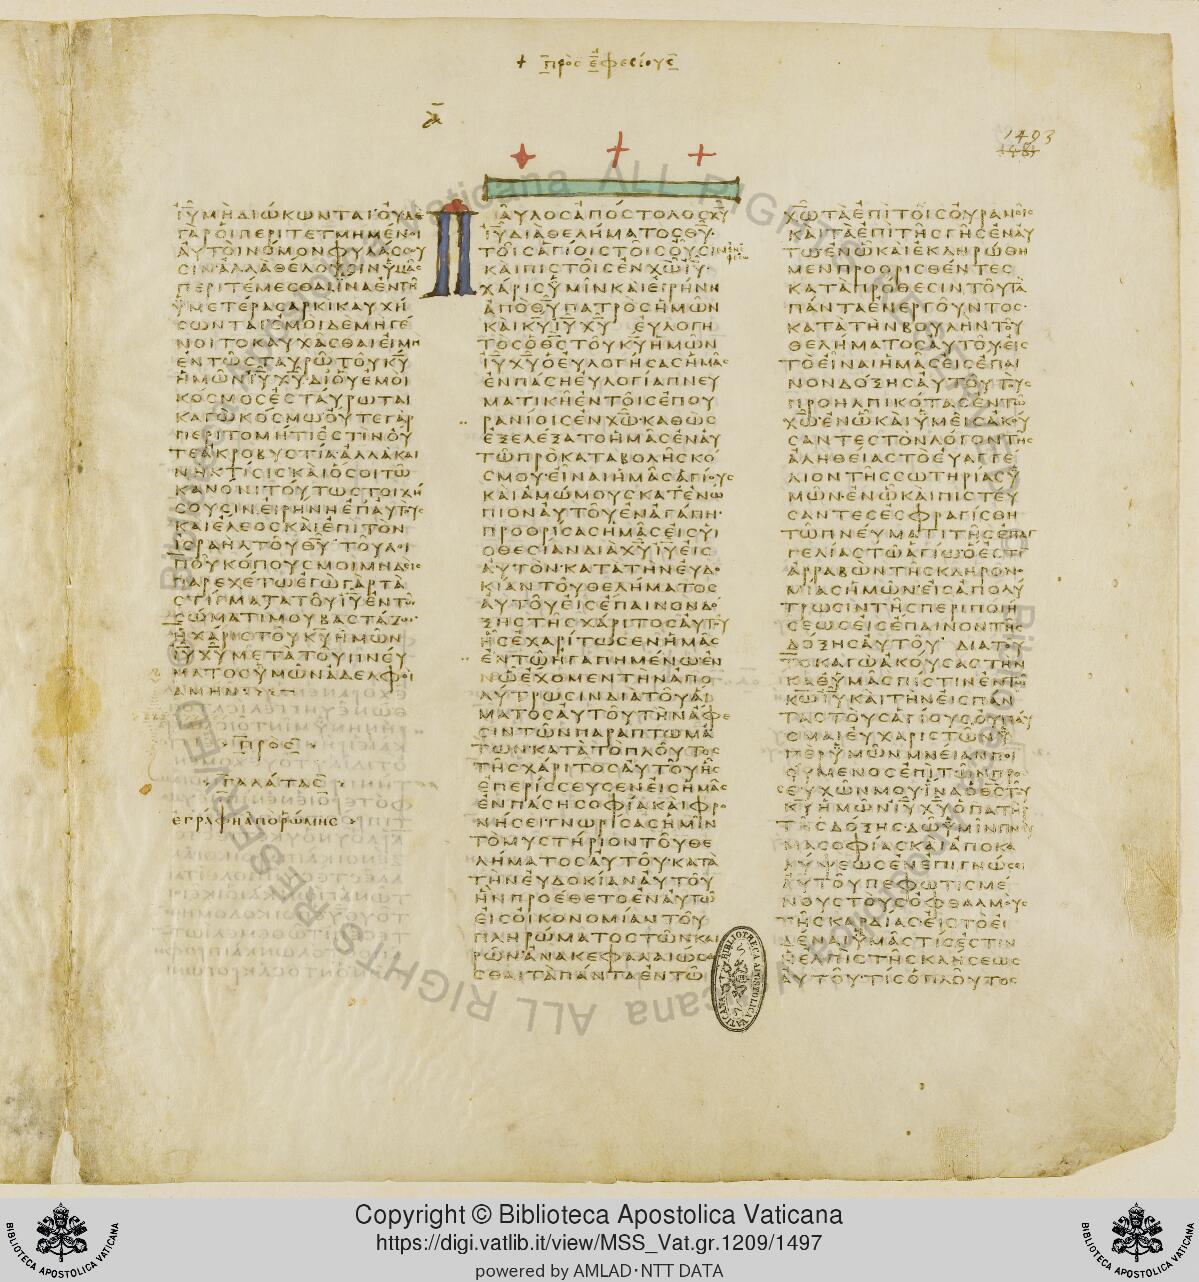 + πρὸς ἐφεσίους
α
1493
ΙΥ ΜΗ ΔΙΩΚΩΝΤΑΙ ΟΥΔΕ
ΓΑΡ ΟΙ ΠΕΡΙΤΕΤΜΗΜΕΝΟΙ
ΑΥΤΟΙ ΝΟΜΟΝ ΦΥΛΑΣΣΟΥ
ΣΙΝ ΑΛΛΑ ΘΕΛΟΥΣΙΝ ΥΜΑΣ
ΠΕΡΙΤΕΜΕΣΘΑΙ ΙΝΑ ΕΝ ΤΗ
ΥΜΕΤΕΡΑ ΣΑΡΚΙ ΚΑΥΧΗ
ΣΩΝΤΑΙ ΕΜΟΙ ΔΕ ΜΗ ΓΕ
ΝΟΙΤΟ ΚΑΥΧΑΣΘΑΙ ΕΙ ΜΗ
ΕΝ ΤΩ ΣΤΑΥΡΩ ΤΟΥ ΚΥ
ΗΜΩΝ ΙΥ ΧΥ ΔΙ ΟΥ ΕΜΟΙ
ΚΟΣΜΟΣ ΕΣΤΑΥΡΩΤΑΙ
ΚΑΓΩ ΚΟΣΜΩ ΟΥΤΕ ΓΑΡ
ΠΕΡΙΤΟΜΗ ΤΙ ΕΣΤΙΝ ΟΥ
ΤΕ ΑΚΡΟΒΥΣΤΙΑ ΑΛΛΑ ΚΑΙ
ΝΗ ΚΤΙΣΙΣ ΚΑΙ ΟΣΟΙ ΤΩ
ΚΑΝΟΝΙ ΤΟΥΤΩ ΣΤΟΙΧΗ
ΣΟΥΣΙΝ ΕΙΡΗΝΗ ΕΠ ΑΥΤΟΥΣ
ΚΑΙ ΕΛΕΟΣ ΚΑΙ ΕΠΙ ΤΟΝ
ΙΣΡΑΗΛ ΤΟΥ ΘΥ ΤΟΥ ΛΟΙ
ΠΟΥ ΚΟΠΟΥΣ ΜΟΙ ΜΗΔΕΙΣ
ΠΑΡΕΧΕΤΩ ΕΓΩ ΓΑΡ ΤΑ
ΣΤΙΓΜΑΤΑ ΤΟΥ ΙΥ ΕΝ ΤΩ
ΣΩΜΑΤΙ ΜΟΥ ΒΑΣΤΑΖΩ
Η ΧΑΡΙΣ ΤΟΥ ΚΥ ΗΜΩΝ
ΙΥ ΧΥ ΜΕΤΑ ΤΟΥ ΠΝΕΥ
ΜΑΤΟΣ ΥΜΩΝ ΑΔΕΛΦΟΙ
ΑΜΗΝ
ΠΡΟΣ
ΓΑΛΑΤΑΣ
ΕΓΡΑΦΗ ΑΠΟ ΡΩΜΗΣ
ΠΑΥΛΟΣ ΑΠΟΣΤΟΛΟΣ ΧΥ
ΙΥ ΔΙΑ ΘΕΛΗΜΑΤΟΣ ΘΥ
ΤΟΙΣ ΑΓΙΟΙΣ ΤΟΙΣ ΟΥΣΙ ἐν ἐφέσω
ΚΑΙ ΠΙΣΤΟΙΣ ΕΝ ΧΩ ΙΥ
ΧΑΡΙΣ ΥΜΙΝ ΚΑΙ ΕΙΡΗΝΗ
ΑΠΟ ΘΥ ΠΑΤΡΟΣ ΗΜΩΝ
ΚΑΙ ΚΥ ΙΥ ΧΥ ΕΥΛΟΓΗ
ΤΟΣ Ο ΘΣ ΤΟΥ ΚΥ ΗΜΩΝ
ΙΥ ΧΥ Ο ΕΥΛΟΓΗΣΑΣ ΗΜΑΣ
ΕΝ ΠΑΣΗ ΕΥΛΟΓΙΑ ΠΝΕΥ
ΜΑΤΙΚΗ ΕΝ ΤΟΙΣ ΕΠΟΥ
ΡΑΝΙΟΙΣ ΕΝ ΧΩ ΚΑΘΩΣ
ΕΞΕΛΕΞΑΤΟ ΗΜΑΣ ΕΝ ΑΥ
ΤΩ ΠΡΟ ΚΑΤΑΒΟΛΗΣ ΚΟ
ΣΜΟΥ ΕΙΝΑΙ ΗΜΑΣ ΑΓΙΟΥΣ
ΚΑΙ ΑΜΩΜΟΥΣ ΚΑΤΕΝΩ
ΠΙΟΝ ΑΥΤΟΥ ΕΝ ΑΓΑΠΗ
ΠΡΟΟΡΙΣΑΣ ΗΜΑΣ ΕΙΣ ΥΙ
ΟΘΕΣΙΑΝ ΔΙΑ ΧΥ ΙΥ ΕΙΣ
ΑΥΤΟΝ ΚΑΤΑ ΤΗΝ ΕΥΔΟ
ΚΙΑΝ ΤΟΥ ΘΕΛΗΜΑΤΟΣ
ΑΥΤΟΥ ΕΙΣ ΕΠΑΙΝΟΝ ΔΟ
ΞΗΣ ΤΗΣ ΧΑΡΙΤΟΣ ΑΥΤΟΥ
ΗΣ ΕΧΑΡΙΤΩΣΕΝ ΗΜΑΣ
ΕΝ ΤΩ ΗΓΑΠΗΜΕΝΩ ΕΝ
Ω ΕΧΟΜΕΝ ΤΗΝ ΑΠΟ
ΛΥΤΡΩΣΙΝ ΔΙΑ ΤΟΥ ΑΙ
ΜΑΤΟΣ ΑΥΤΟΥ ΤΗΝ ΑΦΕ
ΣΙΝ ΤΩΝ ΠΑΡΑΠΤΩΜΑ
ΤΩΝ ΚΑΤΑ ΤΟ ΠΛΟΥΤΟΣ
ΤΗΣ ΧΑΡΙΤΟΣ ΑΥΤΟΥ ΗΣ
ΕΠΕΡΙΣΣΕΥΣΕΝ ΕΙΣ ΗΜΑΣ
ΕΝ ΠΑΣΗ ΣΟΦΙΑ ΚΑΙ ΦΡΟ
ΝΗΣΕΙ ΓΝΩΡΙΣΑΣ ΗΜΙΝ
ΤΟ ΜΥΣΤΗΡΙΟΝ ΤΟΥ ΘΕ
ΛΗΜΑΤΟΣ ΑΥΤΟΥ ΚΑΤΑ
ΤΗΝ ΕΥΔΟΚΙΑΝ ΑΥΤΟΥ
ΗΝ ΠΡΟΕΘΕΤΟ ΕΝ ΑΥΤΩ
ΕΙΣ ΟΙΚΟΝΟΜΙΑΝ ΤΟΥ
ΠΛΗΡΩΜΑΤΟΣ ΤΩΝ ΚΑΙ
ΡΩΝ ΑΝΑΚΕΦΑΛΑΙΩΣΑ
ΣΘΑΙ ΤΑ ΠΑΝΤΑ ΕΝ ΤΩ
ΧΩ ΤΑ ΕΠΙ ΤΟΙΣ ΟΥΡΑΝΟΙΣ
ΚΑΙ ΤΑ ΕΠΙ ΤΗΣ ΓΗΣ ΕΝ ΑΥ
ΤΩ ΕΝ Ω ΚΑΙ ΕΚΛΗΡΩΘΗ
ΜΕΝ ΠΡΟΟΡΙΣΘΕΝΤΕΣ
ΚΑΤΑ ΠΡΟΘΕΣΙΝ ΤΟΥ ΤΑ
ΠΑΝΤΑ ΕΝΕΡΓΟΥΝΤΟΣ
ΚΑΤΑ ΤΗΝ ΒΟΥΛΗΝ ΤΟΥ
ΘΕΛΗΜΑΤΟΣ ΑΥΤΟΥ ΕΙΣ
ΤΟ ΕΙΝΑΙ ΗΜΑΣ ΕΙΣ ΕΠΑΙ
ΝΟΝ ΔΟΞΗΣ ΑΥΤΟΥ ΤΟΥΣ
ΠΡΟΗΛΠΙΚΟΤΑΣ ΕΝ ΤΩ
ΧΩ ΕΝ Ω ΚΑΙ ΥΜΕΙΣ ΑΚΟΥ
ΣΑΝΤΕΣ ΤΟΝ ΛΟΓΟΝ ΤΗΣ
ΑΛΗΘΕΙΑΣ ΤΟ ΕΥΑΓΓΕ
ΛΙΟΝ ΤΗΣ ΣΩΤΗΡΙΑΣ Υ
ΜΩΝ ΕΝ Ω ΚΑΙ ΠΙΣΤΕΥ
ΣΑΝΤΕΣ ΕΣΦΡΑΓΙΣΘΗ
ΤΩ ΠΝΕΥΜΑΤΙ ΤΗΣ ΕΠΑΓ
ΓΕΛΙΑΣ ΤΩ ΑΓΙΩ Ο ΕΣΤΙ
ΑΡΡΑΒΩΝ ΤΗΣ ΚΛΗΡΟΝΟ
ΜΙΑΣ ΗΜΩΝ ΕΙΣ ΑΠΟΛΥ
ΤΡΩΣΙΝ ΤΗΣ ΠΕΡΙΠΟΙΗ
ΣΕΩΣ ΕΙΣ ΕΠΑΙΝΟΝ ΤΗΣ
ΔΟΞΗΣ ΑΥΤΟΥ ΔΙΑ ΤΟΥ
ΤΟ ΚΑΓΩ ΑΚΟΥΣΑΣ ΤΗΝ
ΚΑΘ ΥΜΑΣ ΠΙΣΤΙΝ ΕΝ ΤΩ
ΚΩ ΙΥ ΚΑΙ ΤΗΝ ΕΙΣ ΠΑΝ
ΤΑΣ ΤΟΥΣ ΑΓΙΟΥΣ ΟΥ ΠΑΥ
ΟΜΑΙ ΕΥΧΑΡΙΣΤΩΝ Υ
ΠΕΡ ΥΜΩΝ ΜΝΕΙΑΝ ΠΟΙ
ΟΥΜΕΝΟΣ ΕΠΙ ΤΩΝ ΠΡΟΣ
ΕΥΧΩΝ ΜΟΥ ΙΝΑ Ο ΘΣ ΤΟΥ
ΚΥ ΗΜΩΝ ΙΥ ΧΥ Ο ΠΑΤΗΡ
ΤΗΣ ΔΟΞΗΣ ΔΩ ΥΜΙΝ ΠΝΕΥ
ΜΑ ΣΟΦΙΑΣ ΚΑΙ ΑΠΟΚΑ
ΛΥΨΕΩΣ ΕΝ ΕΠΙΓΝΩΣΕΙ
ΑΥΤΟΥ ΠΕΦΩΤΙΣΜΕ
ΝΟΥΣ ΤΟΥΣ ΟΦΘΑΛΜΟΥΣ
ΤΗΣ ΚΑΡΔΙΑΣ ΕΙΣ ΤΟ ΕΙ
ΔΕΝΑΙ ΥΜΑΣ ΤΙΣ ΕΣΤΙΝ
Η ΕΛΠΙΣ ΤΗΣ ΚΛΗΣΕΩΣ
ΑΥΤΟΥ ΤΙΣ Ο ΠΛΟΥΤΟΣ
BIBLIOTHECA APOSTOLICA VATICANA
Copyright © Biblioteca Apostolica Vaticana
https://digi.vatlib.it/view/MSS_Vat.gr.1209/1497
powered by AMLAD·NTT DATA
BIBLIOTECA APOSTOLICA VATICANA
BIBLIOTECA APOSTOLICA VATICANA